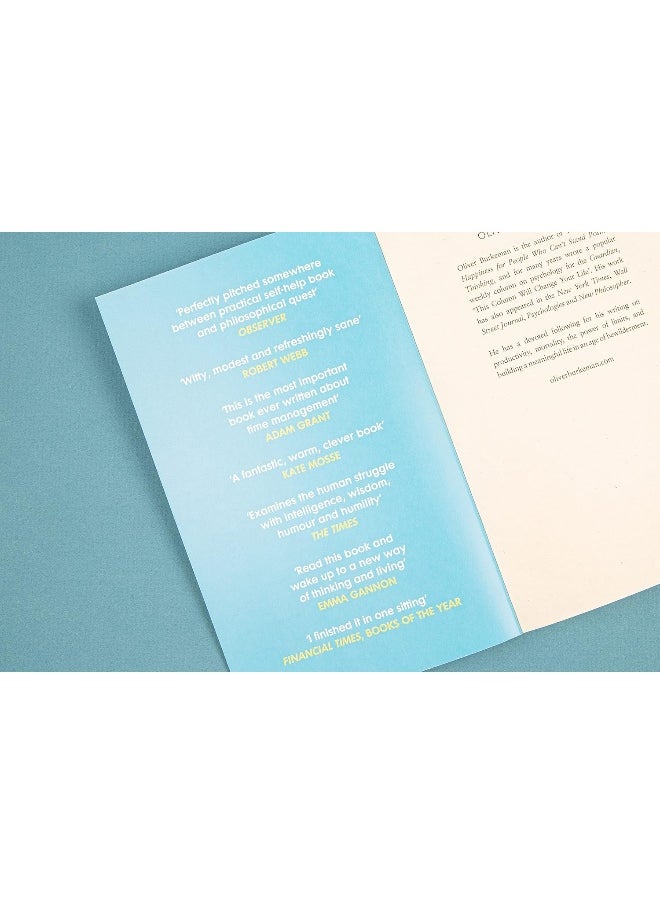 'Perfectly pitched somewhere
between practical self-help book
and philosophical quest'
OBSERVER
'Witty, modest and refreshingly sane'
ROBERT WEBB
'This is the most important
book ever written about
time management'
ADAM GRANT
'A fantastic, warm, clever book'
KATE MOSSE
'Examines the human struggle
with intelligence, wisdom,
humour and humility'
THE TIMES
'Read this book and
wake up to a new way
of thinking and living'
EMMA GANNON
'I finished it in one sitting'
FINANCIAL TIMES, BOOKS OF THE YEAR
Oliver Burkeman is the author of
Happiness for People Who Can't Stand Positive
Thinking, and for many years wrote a popular
weekly column on psychology for the Guardian,
'This Column Will Change Your Life'. His work
has also appeared in the New York Times, Wall
Street Journal, Psychologies and New Philosopher.
He has a devoted following for his writing on
productivity, mortality, the power of limits, and
building a meaningful life in an age of bewilderment.
oliverburkeman.com